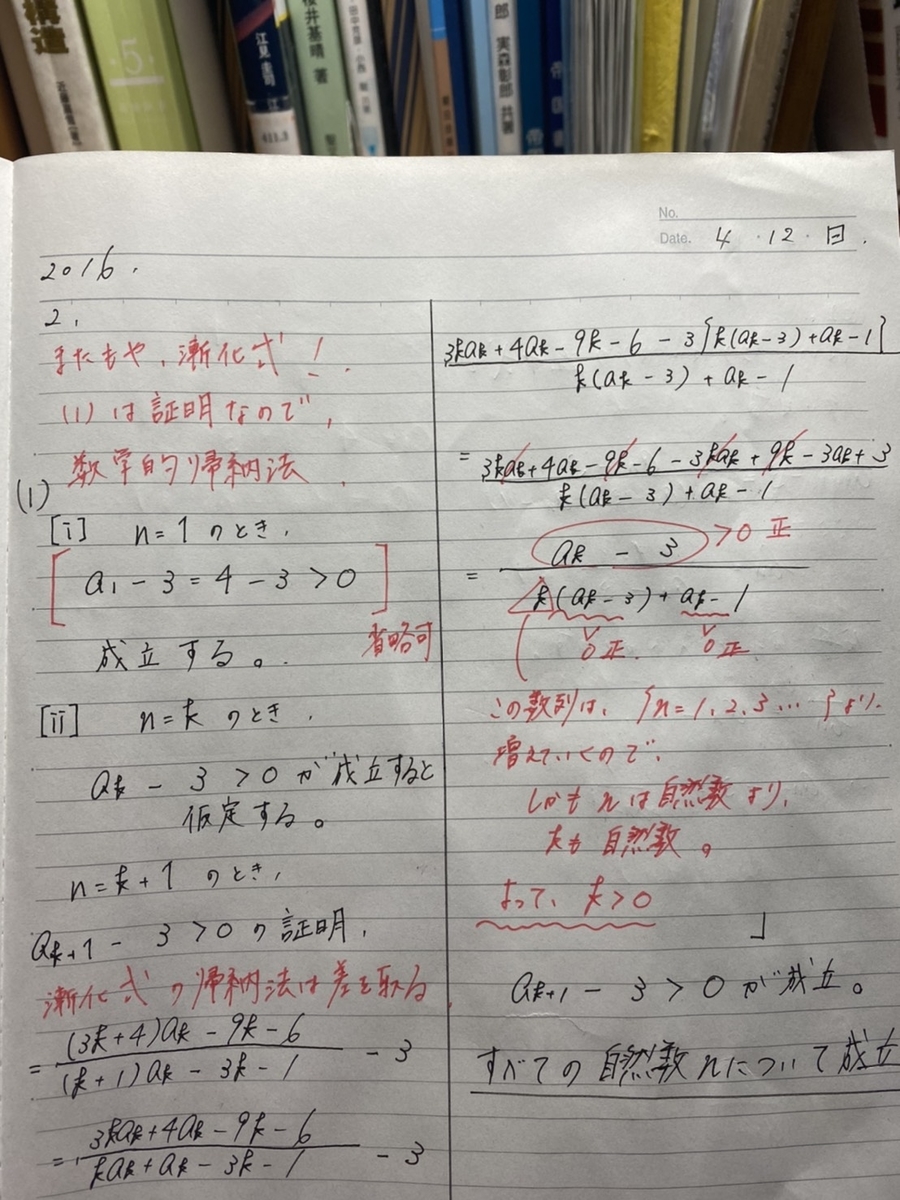 構造
5
江見圭司
江
411.3
桜井基晴 著
郎 実森彰郎 共著
No.
Date. 4・12・日.
2016.
2.
またもや、漸化式!
(1)は証明なので、
数学的帰納法
(1)
[i] n=1のとき、
a1 - 3 = 4 - 3 > 0
成立する。 省略可
[ii] n=kのとき、
ak - 3 > 0 が成立すると
仮定する。
n=k+1 のとき、
ak+1 - 3 > 0 の証明、
漸化式の帰納法は差を取る
= (3k+4)ak - 9k - 6 / (k+1)ak - 3k - 1 - 3
= 3kak + 4ak - 9k - 6 / kak + ak - 3k - 1 - 3
3kak + 4ak - 9k - 6 - 3{k(ak-3) + ak - 1} / k(ak - 3) + ak - 1
= 3kak + 4ak - 9k - 6 - 3kak + 9k - 3ak + 3 / k(ak - 3) + ak - 1
= ak - 3 / k(ak - 3) + ak - 1 >0 正
0 正 0 正
この数列は、{n=1, 2, 3 … }より、
増えていくので、
しかも nは自然数より、
kも 自然数。
よって、k>0
」
ak+1 - 3 > 0 が成立。
すべての自然数nについて成立